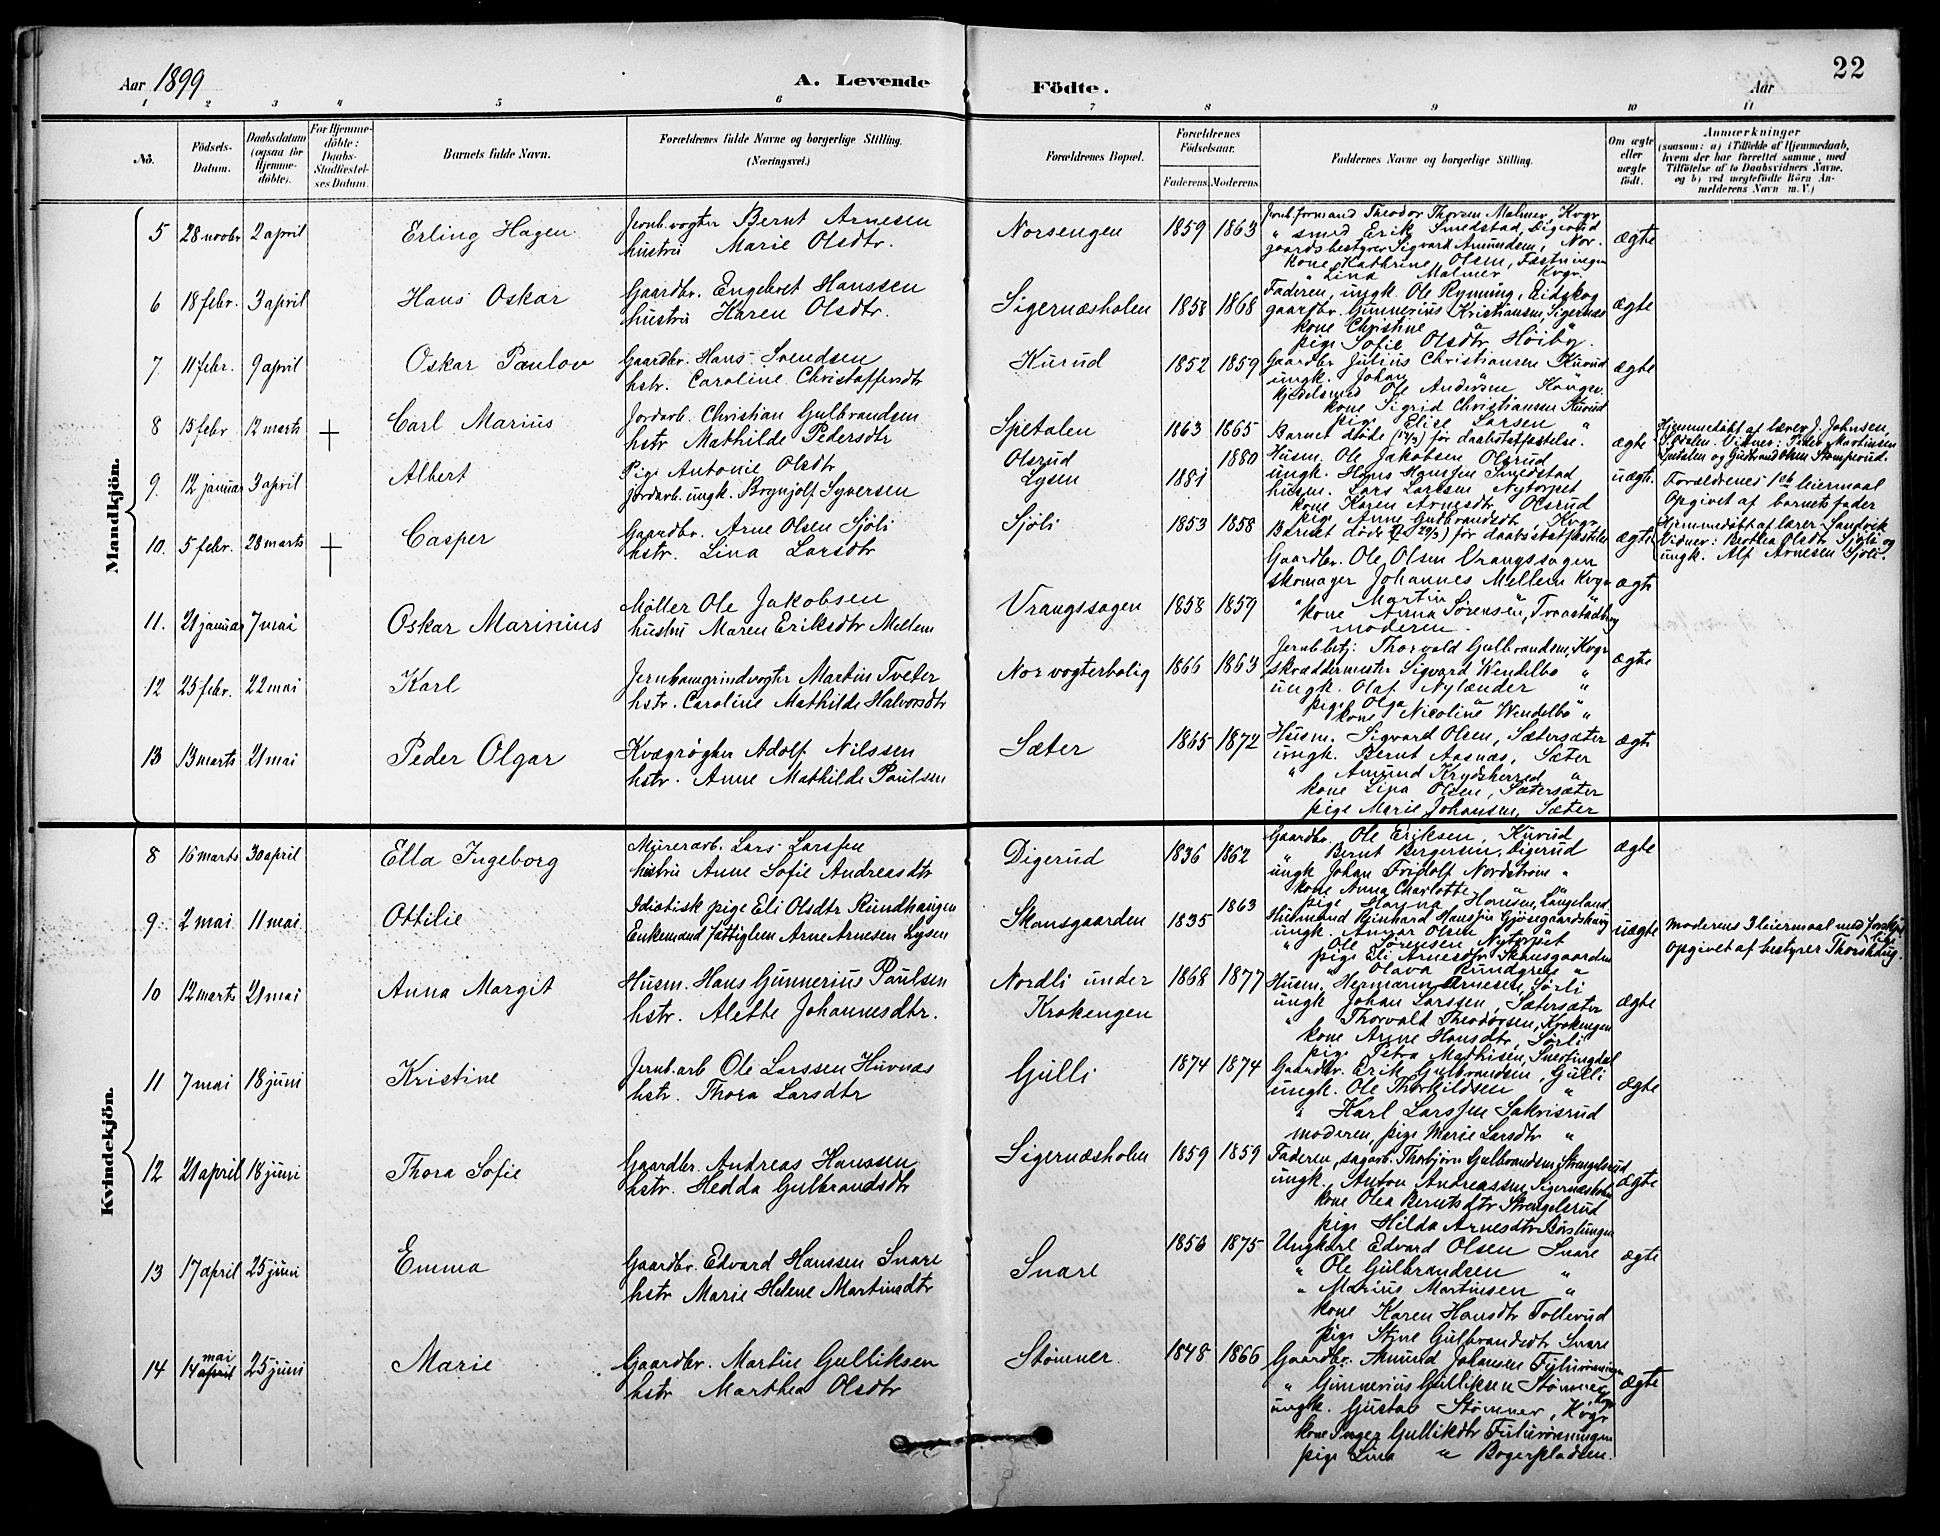 Aar 1899
A. Levende Födte.
Aar
22
1 2 3 4 5 6 7 8 9 10 11
No.
Födsels-Datum.
Daabsdatum (ogsaa for Hjemme-döbte).
For Hjemme-döbte: Daabs-Stadfæstel-ses Datum.
Barnets fulde Navn.
Forældrenes fulde Navne og borgerlige Stilling. (Næringsvei.)
Forældrenes Bopæl.
Forældrenes Födselsaar.
Faderens. Moderens.
Faddernes Navne og borgerlige Stilling.
Om ægte eller uægte födt.
Anmærkninger
(saasom: a) i Tilfælde af Hjemmedaab, hvem der har forrettet samme, med Tilföielse af to Daabsvidners Navne, og b) ved uægtefödte Börn An-melderens Navn m. V.)
Mandkjön.
5 28 novbr 2 april Erling Hagen Jernb.vogter Bernt Arnesen
hustru Marie Olsdtr. Norsengen 1859 1863 Jernb.formand Theodor Thorsen Malmer, Kvgr.
" smed Erik Smedstad, Digerud
gaardsbestyrer Sigvard Amundsen, Nor.
kone Kathrine Olsen, Fæstningen
" Lina Malmer Kvgr. ægte
6 18 febr. 3 april Hans Oskar Gaardbr. Engebret Hanssen
hustru Karen Olsdtr. Sigernæsholen 1858 1868 Faderen, ungk. Ole Ryming, Eidskog
gaardbr. Gunnerius Kristiansen, Sigernæs
kone Christine "
pige Sofie Olsdtr Höiby. ægte
7. 11 febr. 9 april Oskar Paulov Gaardbr. Hans Svendsen
hstr. Caroline Christoffersdtr Kurud 1852 1859 Gaardbr Julius Christiansen Kurud
ungk. Johan "
kjedelsmed Ole Andersen Kongsv.
kone Sigrid Christiansen Kurud
pige Elise Larsen " ægte
8 15 febr 12 marts + Carl Marius Jordarb. Christian Gulbrandsen
hstr Mathilde Pedersdtr Spetalen 1863 1865 Barnet døde for daabsstadfæstelse. ægte Hjemmedøbt af lærer J. Johnsen,
Vidner: Peder Martinsen
og Gudbrand Olsen Stomperud.
9. 12 januar 3 april Albert Pige Antonie Olsdtr
jordarb. ungk. Brynjolf Syversen Olsrud
Lysen 1881 1880 Husm. Ole Jakobsen Olsrud
ungk. Hans Hanssen Smedstad
husm. Lars Larssen Nytorpet
kone Karen Arnesdtr Olsrud
pige Anne Gudbrandsdtr, Kvgr uægte. Forældrenes 1ste leiermaal
Opgivet af barnets fader
10. 5 febr. 28 marts + Casper Gaardbr. Arne Olsen Sjöli
hstr. Lina Larsdtr Sjöli 1853 1858 Barnet døde for daabsstadfæstelse ægte Hjemmedøbt af lærer Sandvik
Vidner: Berthea Olsdtr Sjöli og
ungk. Alf Arnesen Sjöli.
11. 21 januar 7 mai Oskar Marinius Møller Ole Jakobsen
hustru Maren Eriksdtr Mellem Vrangssagen 1858 1859 Gaardbr. Ole Olsen Vrangssagen
skomager Johannes Mellem Kvgr
" Martin "
kone Anna Sørensen,
moderen ægte
12 25 febr. 22 mai Karl Jernbanegrindvogter Martin Tveter
hstr. Caroline Mathilde Halvorsdtr Nor vogterbolig 1866 1863 Jernb.betj. Thorvald Gulbrandsen, Kvgr
skræddermester Sigvard Wendelbo "
ungk. Olaf Nylænder "
pige Olga "
kone Nicoline Wendelbo " ægte
13 13 marts 21 mai Peder Olgar Kvægrøgter Adolf Nilssen
hstr. Anne Mathilde Paulsen Sæter 1865 1872 Husm. Sigvard Olsen, Sætersæter
ungk. Bernt Aasnæs, Sæter
" Amund Krydsherred "
kone Lina Olsen, Sætersæter
pige Marie Johansen, Sæter ægte
Kvindekjön.
8 16 marts 30 april Ella Ingeborg Murerarb. Lars Larssen
hustru Anne Sofie Andreasdtr Digerud 1836 1862 Gaardbr. Ole Eriksen, Kurud
" Bernt Bergersen, Digerud
ungk Johan Fridolf Nordstrøm "
kone Anna Charlotte "
pige Magna Hansen, Langeland ægte
9 2 mai 11 mai Ottilie Idiotisk pige Eli Olsdtr Rundhaugen
Enkemand fattiglem Arne Arnesen Lysen Skansgaarden 1835 1863 Husmand Reinhard Hanssen Gjøsegaardshaug
ungk. Annar Olsen "
" Ole Sørensen Nytorpet
pige Eli Arnesdtr Skansgaarden
" Olava Rundgren " uægte Moderens 3 leiermaal med
Opgivet af bestyrer Thorshaug.
10 12 marts 21 mai Anna Margit Husm. Hans Gunnerius Paulsen
hstr. Alette Johannesdtr. Nordli under
Krokengen 1868 1877 Husm. Hermann Arnesen, Sörli
ungk Johan Larssen, Sætersæter
" Thorvald Theodorsen, Krokengen
kone Anne Hansdtr, Sörli
pige Petra Mathisen, Snertingdal ægte
11 7 mai 18 juni Kristine Jernb.arb Ole Larssen Huvnæs
hstr. Thora Larsdtr Gulli 1874 1874 Gaardbr. Erik Gulbrandsen, Gulli
ungk. Ole Thorkildsen "
" Karl Larssen Sakrisrud
moderen, pige Marie Larsdtr " ægte
12 21 april 18 juni Thora Sofie Gaardbr. Andreas Hanssen
hstr. Hedda Gulbrandsdtr Sigernæsholen 1859 1859 Faderen, sagarb. Thorbjørn Gulbrandsen, Strengelsrud
ungk. Anton Andreassen, Sigernæsholen
kone Olea Berntsdtr Strengelsrud
pige Hilda Arnesdtr Børslungen ægte
13 17 april 25 juni Emma Gaardbr. Edvard Hanssen Snare
hstr Marie Helene Martinsdtr Snare 1856 1875 Ungkarl Edvard Olsen Snare
" Ole Gulbrandsen "
" Marius Martinsen "
kone Karen Hansdtr Tollerud
pige Styne Gulbrandsdtr Snare ægte
14 14 april mai 25 juni Marie Gaardbr. Martin Gulliksen
hstr Marthea Olsdtr Stømner. 1848 1866 Gaardbr. Amund Johansen
" Gunnerius Gulliksen Stømner
ungk. Gustav Stømner, Kvgr
kone Inger Gulliksdtr
pige Lina " Bogerpladsen. ægte